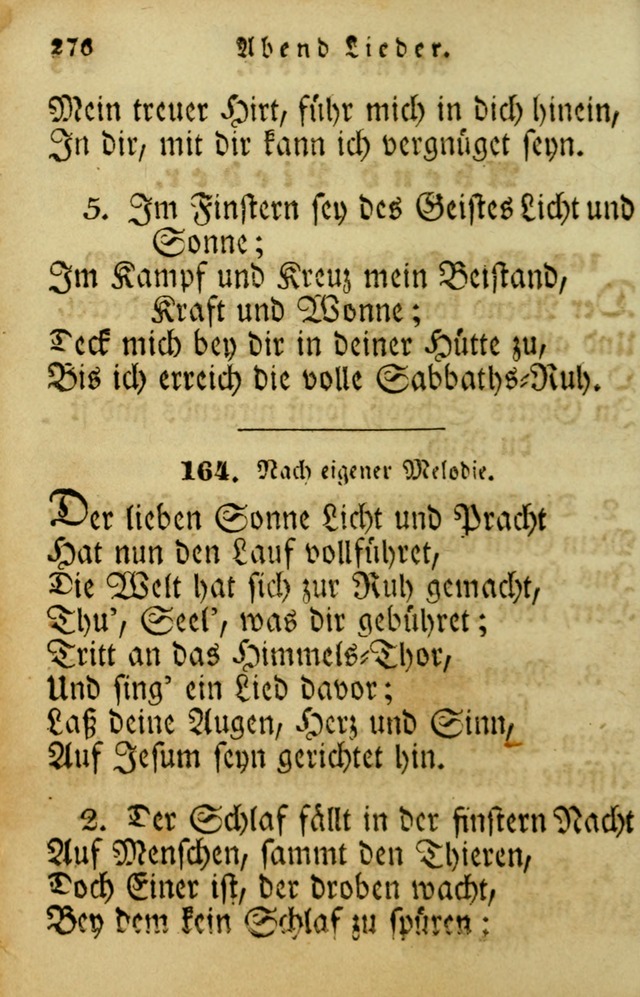 276 Abend Lieder.
Mein treuer Hirt, führ mich in dich hinein,
In dir, mit dir kann ich vergnüget seyn.
5. Im Finstern sey des Geistes Licht und
Sonne;
Im Kampf und Kreuz mein Beistand,
Kraft und Wonne;
Deck mich bey dir in deiner Hütte zu,
Bis ich erreich die volle Sabbaths-Ruh.
164. Nach eigener Melodie.
Der lieben Sonne Licht und Pracht
Hat nun den Lauf vollführet,
Die Welt hat sich zur Ruh gemacht,
Thu', Seel', was dir gebühret;
Tritt an das Himmels-Thor,
Und sing' ein Lied davor;
Laß deine Augen, Herz und Sinn,
Auf Jesum seyn gerichtet hin.
2. Der Schlaf fällt in der finstern Nacht
Auf Menschen, sammt den Thieren,
Doch Einer ist, der droben wacht,
Bey dem kein Schlaf zu spüren: